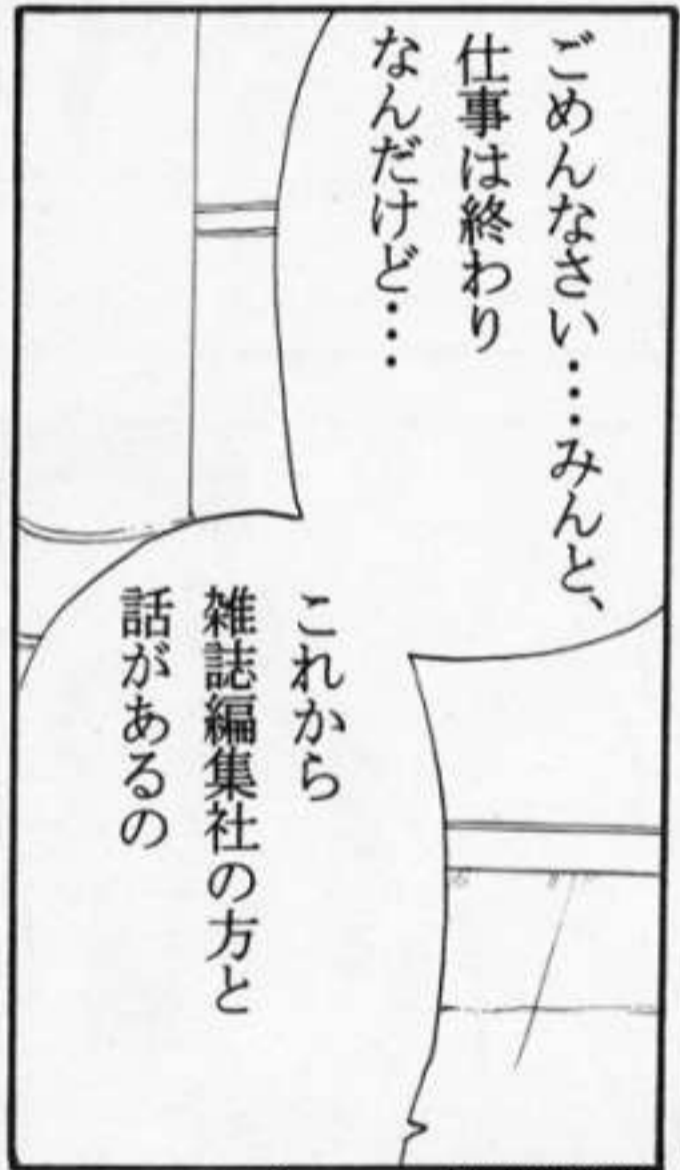 ごめんなさい・・・みんと、
仕事は終わり
なんだけど・・・
これから
雑誌編集社の方と
話があるの